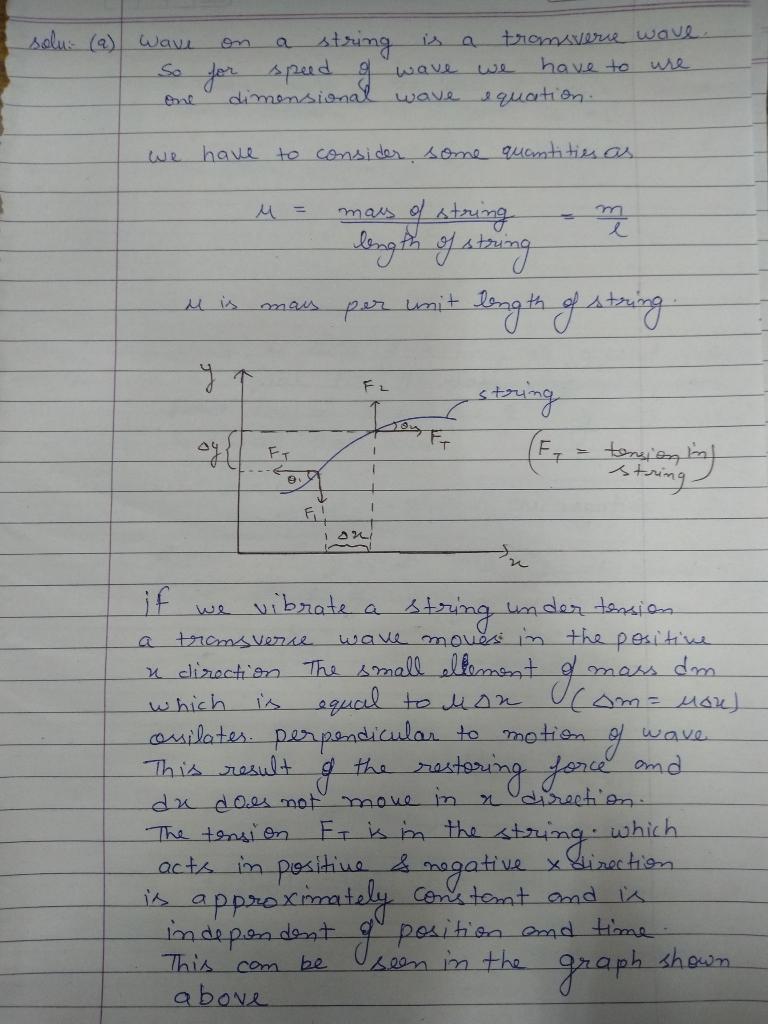 solu:- (a) Wave on a string is a transverse wave.
So for speed of wave we have to use
one dimensional wave equation.
we have to consider some quantities as
μ = mass of string / length of string = m / l
μ is mass per unit length of string.
y
F2
string
Δy
θ2
FT
FT
θ1
(FT = tension in
string)
F1
Δx
x
if we vibrate a string under tension
a transverse wave moves in the positive
x direction The small ellement of mass dm
which is equal to μΔx (Δm = μΔx)
ossilates. perpendicular to motion of wave
This result of the restoring force and
dx does not move in x direction.
The tension FT is in the string. which
acts in positive & negative x direction
is approximately constant and is
independent of position and time.
This can be seen in the graph shown
above